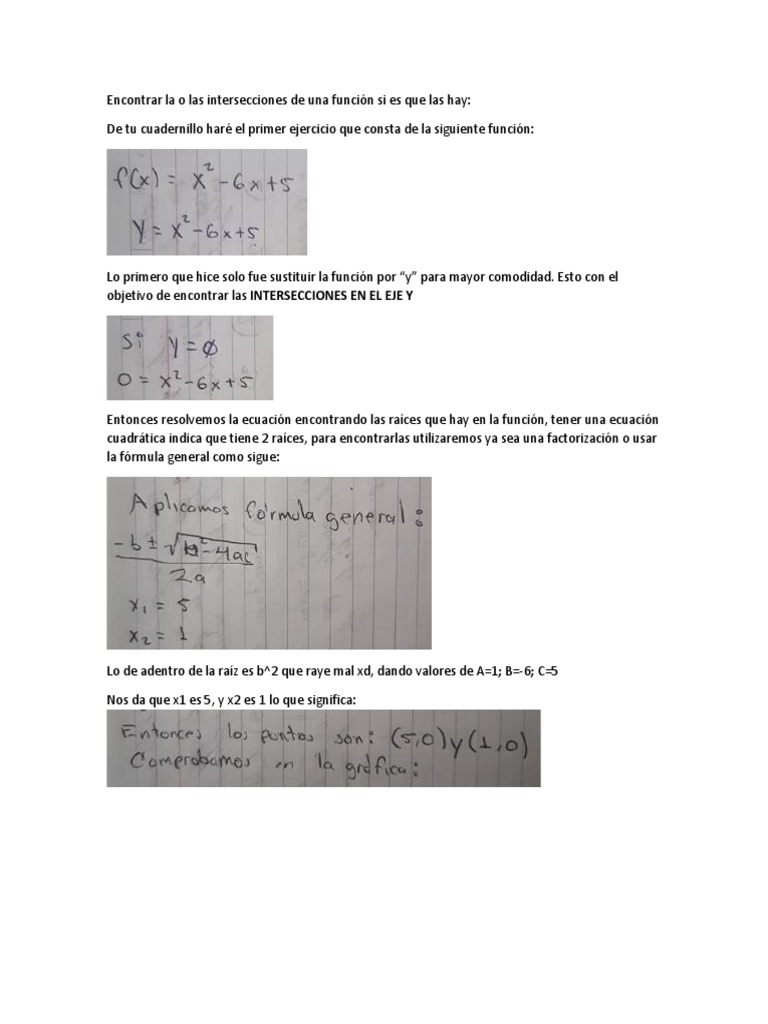 Encontrar la o las intersecciones de una función si es que las hay:
De tu cuadernillo haré el primer ejercicio que consta de la siguiente función:
f(x) = x² - 6x + 5
y = x² - 6x + 5
Lo primero que hice solo fue sustituir la función por “y” para mayor comodidad. Esto con el
objetivo de encontrar las INTERSECCIONES EN EL EJE Y
Si y = ∅
0 = x² - 6x + 5
Entonces resolvemos la ecuación encontrando las raíces que hay en la función, tener una ecuación
cuadrática indica que tiene 2 raíces, para encontrarlas utilizaremos ya sea una factorización o usar
la fórmula general como sigue:
Aplicamos fórmula general:
-b ± √b² - 4ac
2a
x₁ = 5
x₂ = 1
Lo de adentro de la raíz es b^2 que raye mal xd, dando valores de A=1; B=-6; C=5
Nos da que x1 es 5, y x2 es 1 lo que significa:
Entonces los puntos son: (5,0) y (1,0)
Comprobamos en la gráfica: